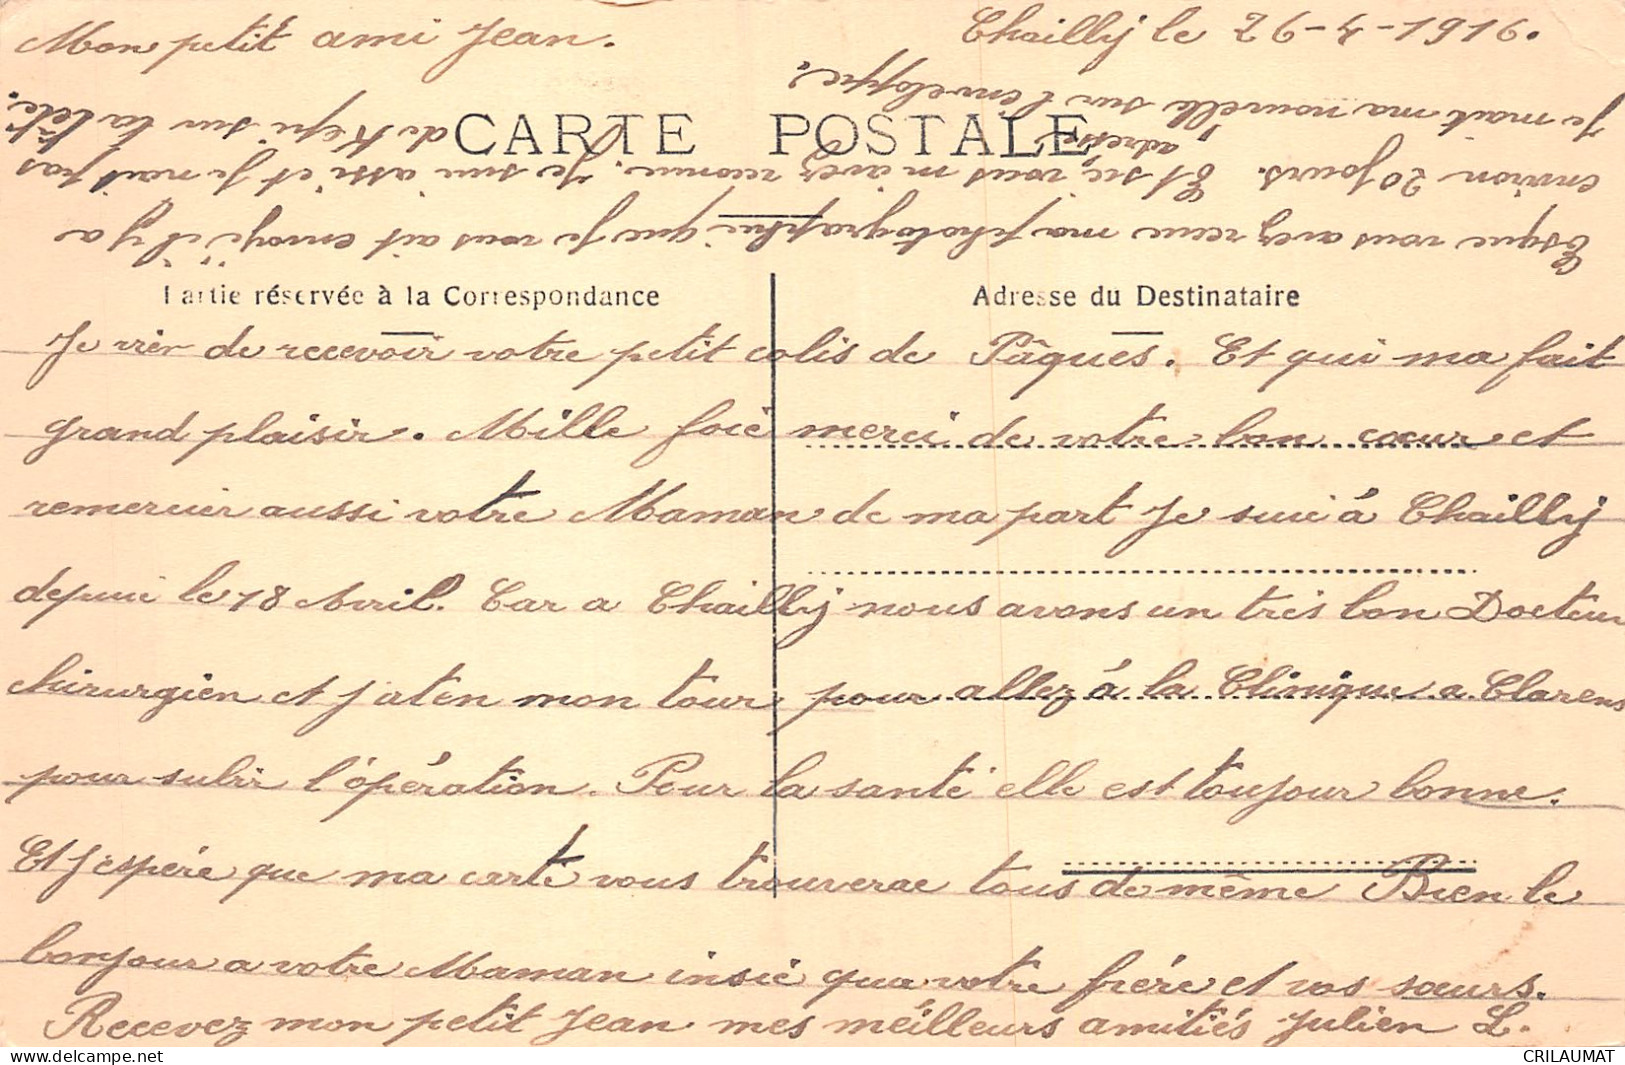 Mon petit ami Jean.
Chailly le 26-4-1916.
CARTE POSTALE
Partie réservée à la Correspondance
Adresse du Destinataire
Je vien de recevoir votre petit colis de Pâques. Et qui ma fait
grand plaisir. Mille foie merci de votre bon cœur et
remercier aussi votre Maman de ma part Je suie à Chailly
depuie le 18 Avril. Car a Chailly nous avons un très bon Docteur
chirurgien et j'aten mon tour pour allez à la Clinique a Clarens
pour subir l'opération. Pour la santé elle est toujour bonne.
Et J'espère que ma carte vous trouverae tous de même Bien le
bonjour a votre Maman insie qua votre frère et vos sœurs.
Recevez mon petit Jean mes meilleurs amitiés Julien L.
Esque vous avez reçue ma photographie que Je vous ait envoyé il y a
environ 20 jours. Et si vous m'avez reconnue. Je suie assi et Je nait pas
de Képi sur la tête.
Je mait ma nouvelle adresse sur l'enveloppe.
CRILAUMAT